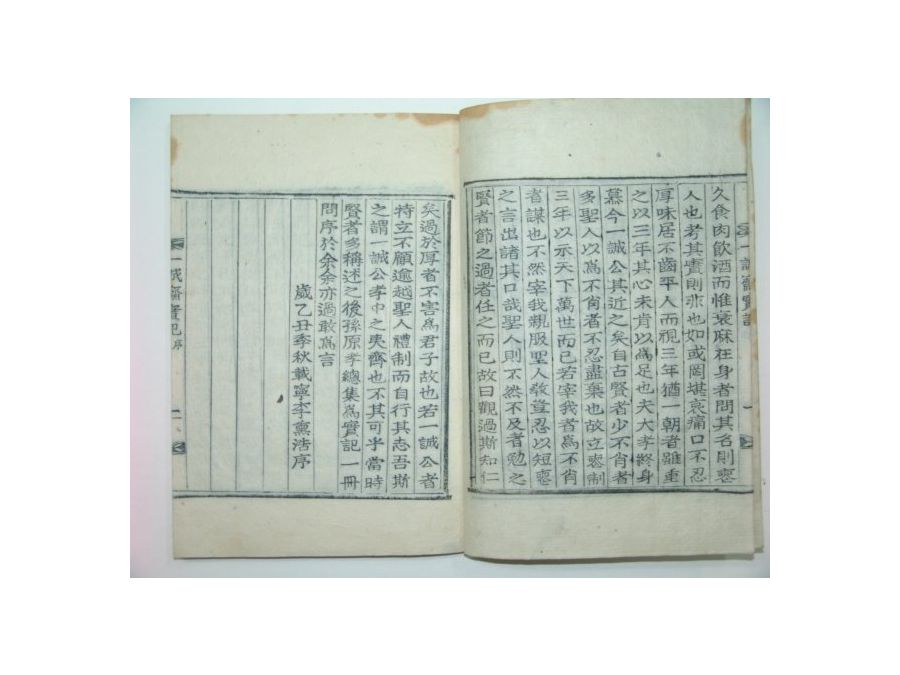 一誠齋實記
久食肉飮酒而惟衰麻在身者問其名則喪
人也考其實則非也如或罔堪哀痛口不忍
厚味居不齒平人而視三年猶一朝者雖重
之以三年其心未肯以爲足也夫大孝終身
慕今一誠公其近之矣自古賢者少不肖者
多聖人以爲不肖者不忍盡棄也故立喪制
三年以示天下萬世而已若宰我者爲不肖
者謀也不然宰我親服聖人敎豈忍以短喪
之言出諸其口哉聖人則不然不及者勉之
賢者節之過者任之而已故曰觀過斯知仁
矣過於厚者不害爲君子故也若一誠公者
特立不顧逾越聖人體制而自行其志吾斯
之謂一誠公孝中之夷齊也不其可乎當時
賢者多稱述之後孫原孝總集爲實記一冊
問序於余余亦過敢爲言
歲乙丑季秋載寧李熏浩序
一誠齋實記 序
一